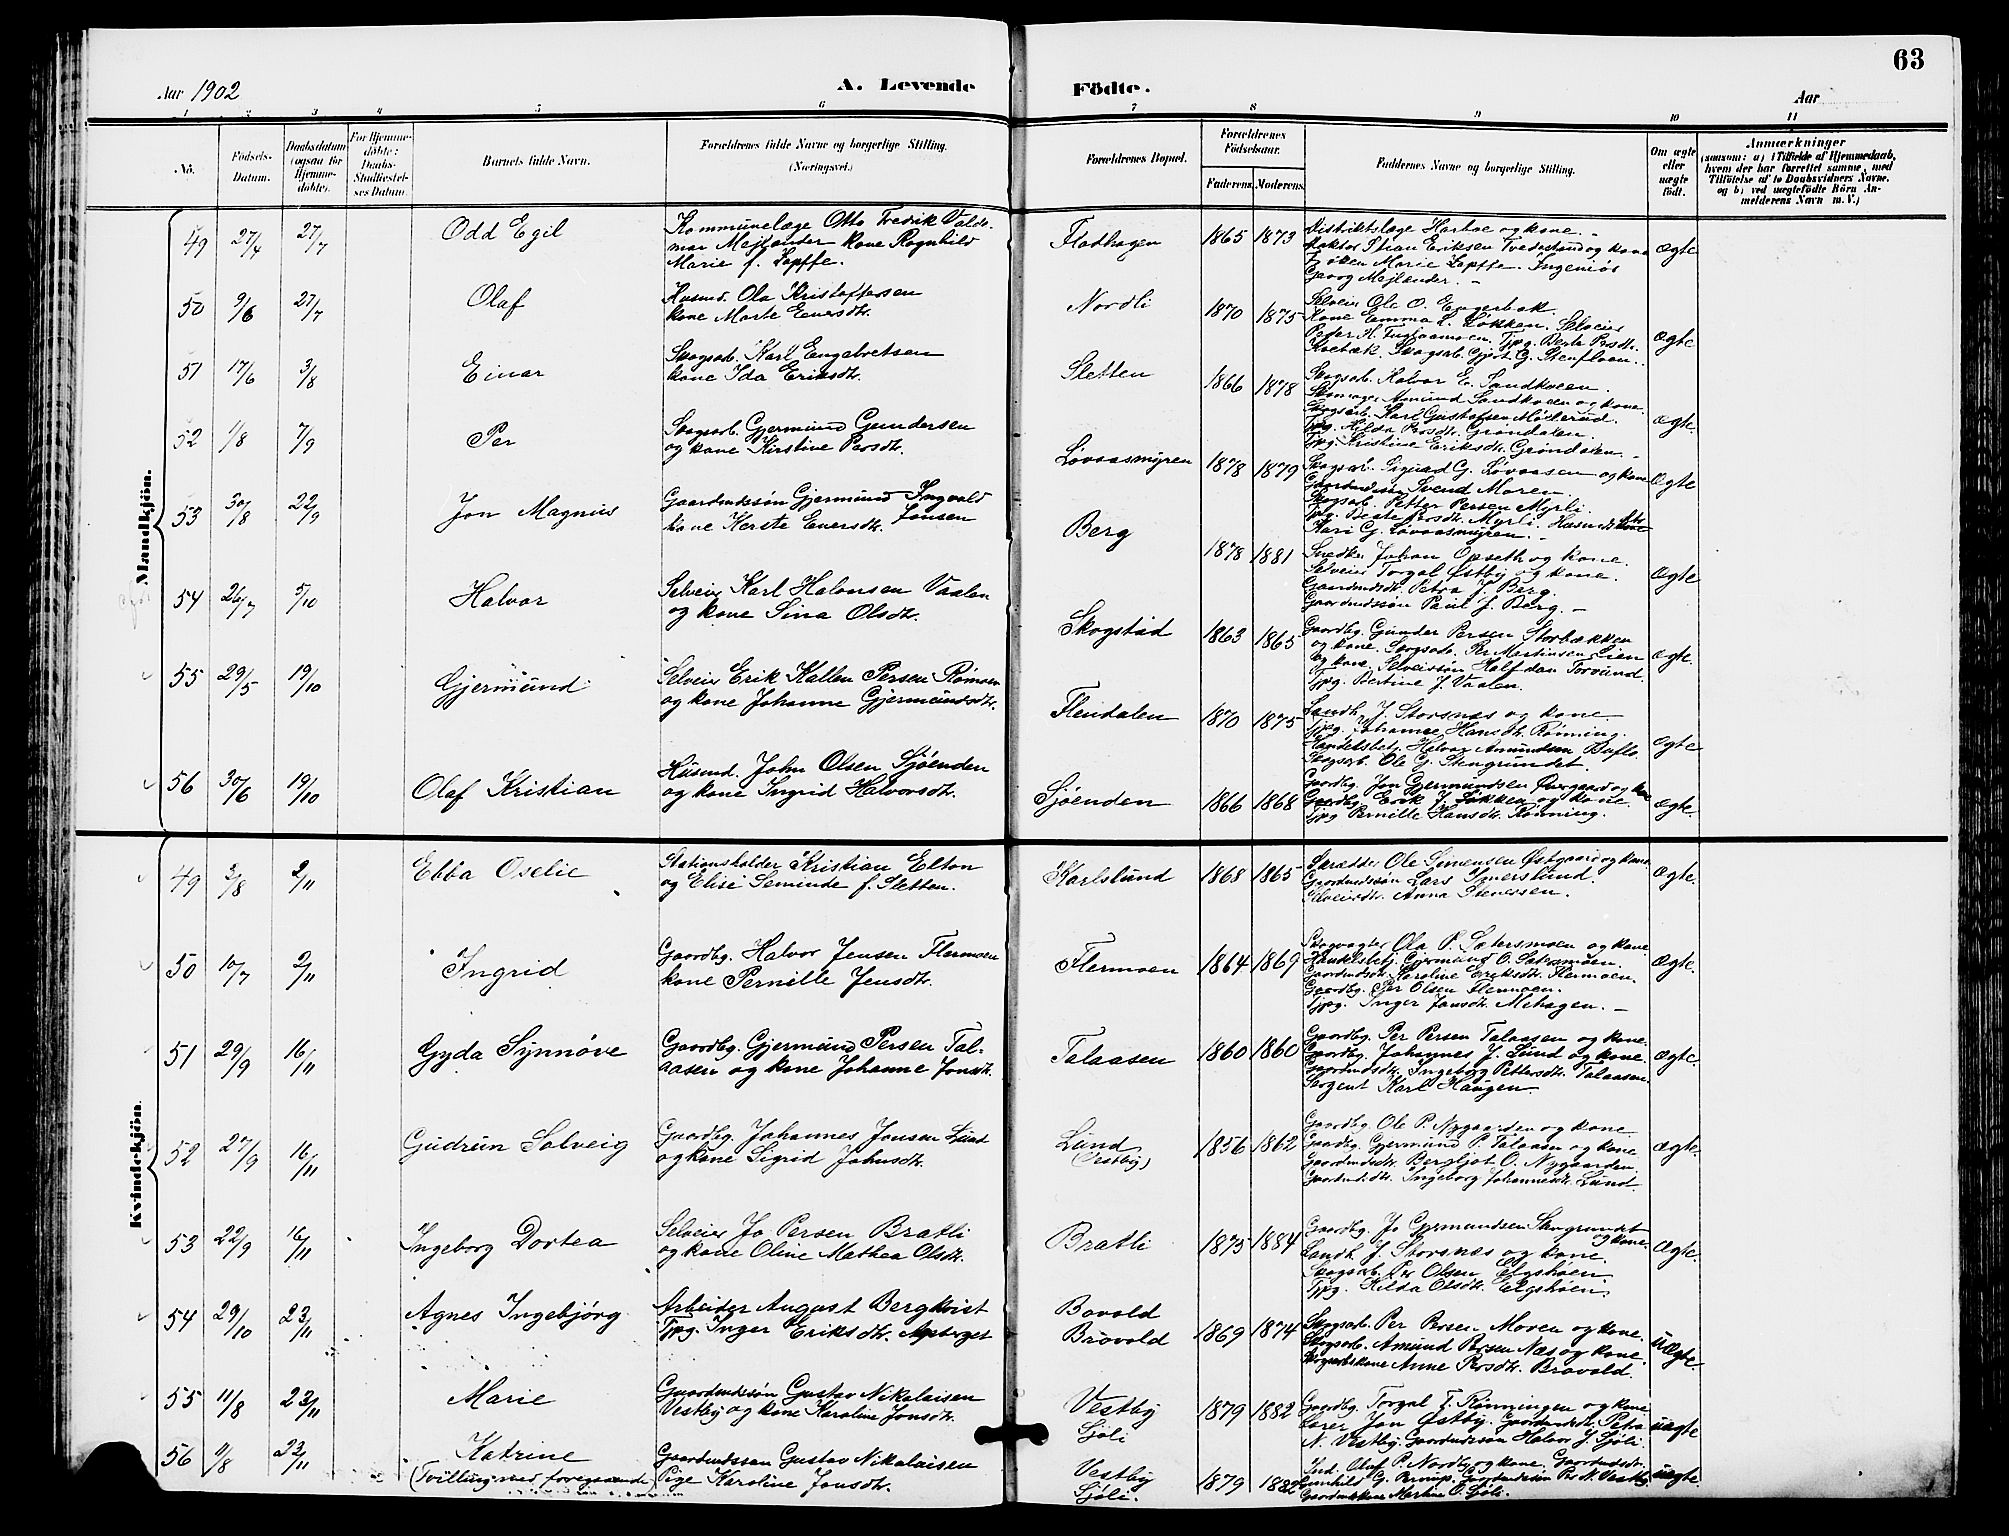 63
Aar 1902
A. Levende Födte.
Aar
1 2 3 4 5 6 7 8 9 10 11
No.
Födsels-Datum.
Daabsdatum (ogsaa for Hjemmedöbte).
For Hjemmedöbte: Daabs-Stadfæstelses Datum.
Barnets fulde Navn.
Forældrenes fulde Navne og borgerlige Stilling. (Næringsvei.)
Forældrenes Bopæl.
Forældrenes Födselsaar.
Faderens. Moderens.
Faddernes Navne og borgerlige Stilling.
Om ægte eller uægte födt.
Anmærkninger
(saasom: a) i Tilfælde af Hjemmedaab, hvem der har forrettet samme, med Tilföielse af to Daabsvidners Navne, og b) ved uægtefödte Börn Anmelderens Navn m. V.)
Mandkjön.
49 27/4 27/7 Odd Egil
Kommunelæge Otto Fredrik Valde-
mar Mejlænder kone Ragnhild
Marie f. Zapffe.
Fladhagen 1865 1873
Distriktslæge Hartoe og kone. -
Eriksen Tvedestrand og kone
Frøken Marie Zapffe. Ingeniør
Georg Mejlænder. -
ægte
50 9/6 27/7 Olaf
Husmd. Ola Kristoffersen
kone Marte Eversdtr.
Nordli 1870 1875
Selveier Ole O. Engerbak.
Kone Emma L. Løkken. Selveier
Peder H. Tjpg. Berte Persdt.
Kvebæk. Skogsarb. G. Stenfloen.
ægte
51 17/6 3/8 Einar
Skogsarb. Karl Engebretsen
kone Ida Eriksdtr.
Sletten 1866 1878
Skogsarb. Halvor E. Sandkveen.
Amund Sandkveen og kone.
Skogsarb. Karl Gustafsen Møllerud.
Tjpg. Hilda Persdt. Grøndalen.
Tjpg. Kristine Eriksdtr. Grøndalen. -
ægte.
52 1/8 7/9 Per
Skogsarb. Gjermund Gundersen
og kone Kirstine Persdtr.
Løvaasmyren 1878 1879
Skogsarb. Sigurd G. Løvaasen og kone
Gaardmdssøn Svend Moren.
Skogsarb. Petter Persen Myrli.
Tjpg. Beate Persdtr. Myrli.
Kari G. Løvaasmyren. -
Ægte
53 30/8 22/9 Jon Magnus
Gaardmdssøn Gjermund Ingvald
kone Kerste Eversdtr. Jonsen
Berg 1878 1881
Snedker Johan Opseth og kone.
Selveier Torgal Østby og kone.
Gaardmdsdtr. Petra J. Berg.
Gaardmdssøn Paul J. Berg. -
Ægte
54 26/7 5/10 Halvor
Selveier Karl Halvorsen Vaalen
og kone Sina Olsdtr.
Skogstad 1863 1865
Gaardbg. Gunder Persen Storbækken
og kone. Skogsarb. Per Martinsen Lien
og kone. Selveiersøn Halfdan Torvund.
Tjpg. Bertine J. Vaalen.
ægte.
55 29/5 19/10 Gjermund
Selveier Erik Kallen Persen Rømoen
og kone Johanne Gjermundsdtr.
Flendalen 1870 1875
Landh. J. Storsnæs og kone.
Tjpg. Johanne Hansdtr. Rønning.
Handelsbetj. Halvor Amundsen Buflo.
Skogsarb. Ole G. Stengrundet.
Ægte
56 30/6 19/10 Olaf Kristian
Husmd. John Olsen Sjøenden
og kone Ingrid Halvorsdtr.
Sjøenden 1866 1868
Gaardbg. Jon Gjermundsen Øvergaard og kone
Gaardbg. Erik J. Løkken og kone.
Tjpg. Pernille Hansdtr. Rønning.
ægte.
Kvindekjön.
49 3/8 2/11 Ebba Oselie
Stationsholder Kristian Elton
og Elise Seminde f. Sletten.
Karlslund 1868 1865
Skrædder Ole Simensen Østgaard og kone.
Gaardmdssøn Lars Smerslund.
Selveierdtr. Anna Stenersen.
Ægte.
50 10/7 2/11 Ingrid
Gaardbg. Halvor Jensen Flermoen
kone Pernille Jensdtr.
Flermoen 1864 1869
Skogvogter Ola P. Sætersmoen og kone.
Handelsbetj. Gjermund O. Sætersmoen.
Gaardmdsdtr. Karoline Eriksdtr. Flermoen.
Gaardbg. Per Olsen Flermoen.
Tjpg. Inger Jonsdtr. Mehagen. -
Ægte.
51 29/9 16/11 Gyda Synnøve
Gaardbg. Gjermund Persen Tal-
aasen og kone Johanne Jonsdtr.
Talaasen 1860 1860
Gaardbg. Per Persen Talaasen og kone.
Gaardbg. Johannes J. Lund og kone.
Gaardmdsdtr. Ingeborg Pettersdtr. Talaasen.
Sergent Karl Haugen.
Ægte.
52 27/9 16/11 Gudrun Solveig
Gaardbg. Johannes Jonsen Lund
og kone Sigrid Johnsdtr.
Lund
(Østby) 1856 1862
Gaardbg. Ole P. Nygaarden og kone.
Gaardbg. Gjermund P. Talaasen og kone
Gaardmdsdtr. Bergljot O. Nygaarden.
Gaardmdsdtr. Ingeborg Johannesdtr. Lund.
Ægte.
53 22/9 16/11 Ingeborg Dortea
Selveier Jo Persen Bratli
og kone Oline Mathea Olsdtr.
Bratli 1875 1884
Gaardbg. Jo Gjermundsen Stengrundet
og kone.
Landh. J. Storsnæs og kone.
Skogsarb. Per Olsen Elgshøen.
Tjpg. Hilda Olsdtr. Elgshøen.
Ægte.
54 29/10 23/11 Agnes Ingebjørg
Arbeider August Bergkvist
Tjpg. Inger Eriksdtr.
Bovold
Brovold 1869 1874
Skogsarb. Per Persen Moren og kone.
Skogsarb. Amund Persen Næs og kone.
Skogsarbskone Anne Persdtr. Brovold.
uægte.
55 11/8 23/11 Marie
Gaardmdssøn Gustav Nikolaisen
Vestby og kone Karoline Jonsdtr.
Vestby
Sjøli 1879 1882
Gaardbg. Torgal T. Rønningen og kone
Lærer Jon Østby. Gaardmdsdtr. Petra
N. Vestby. Gaardmdssøn Halvor J. Sjøli.
uægte
56 11/8 23/11 Katrine
(Tvilling med foregaaende)
Gaardmdssøn Gustav Nikolaisen
Pige Karoline Jonsdtr.
Vestby
Sjøli. 1879 1882
Ind. Olaf P. Nordby og kone. Gaardmdsdtr.
Gunhild G. Gaardmdssøn Per N. Vestby
Gaardmdskone Martine O. Sjøli.
uægte.